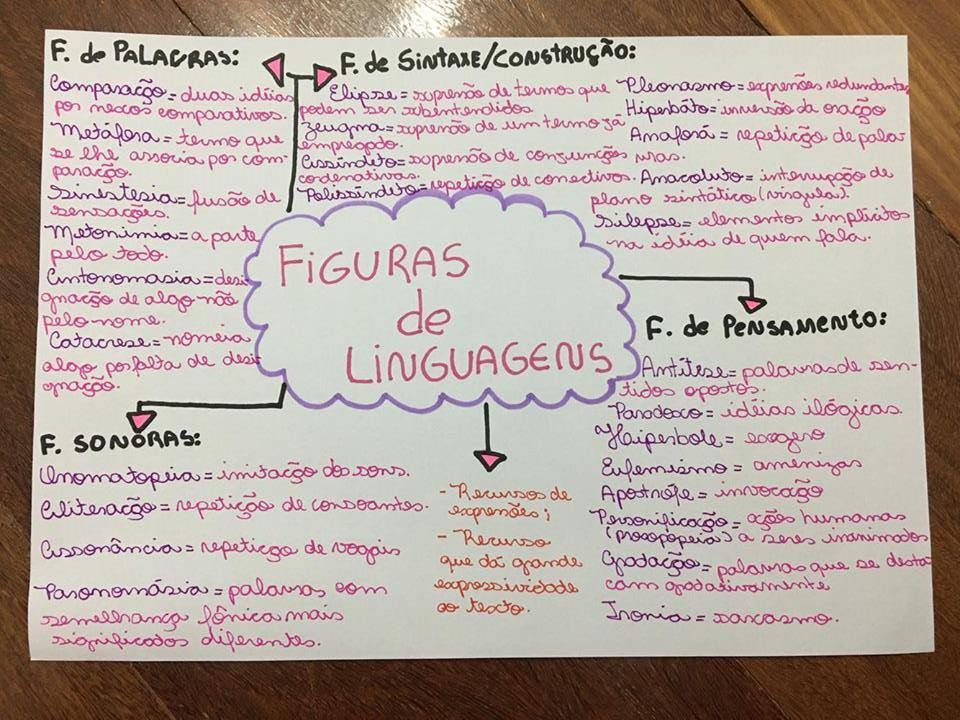 F. de PALAVRAS:
Comparação = duas idéias
por nexos comparativos.
Metáfora = termo que
se lhe associa por com-
paração.
Sinestesia = fusão de
sensações.
Metonimia = a parte
pelo todo.
Antonomasia = desi-
gnação de algo não
pelo nome.
Catacrese = nomeia
algo por falta de desi-
gnação.
F. de SINTAXE/CONSTRUÇÃO:
Elipse = supressão de termos que
podem ser subentendidos.
Zeugma = supressão de um termo já
empregado.
Assíndeto = supressão de conjunções
cordenativas.
Polissíndeto = repetição de conectivos.
Pleonasmo = expressões redundantes
Hiperbáto = inversão da oração
Anaforá = repetição de pala-
vras.
Anacoluto = interrupção de
plano sintático (vírgula).
Silepse = elementos implícitos
na idéia de quem fala.
FIGURAS
de
LINGUAGENS
F. de PENSAMENTO:
Antítese = palavras de sen-
tidos opostos.
Paradoxo = idéias ilógicas.
Haiperbole = exagero
Eufemismo = amenizar
Apostrofe = invocação
Personificação = ações humanas
(prosopopeia) a seres inanimados
Gradação = palavras que se desta
cam gradativamente
Ironia = sarcasmo.
F. SONORAS:
Onomatopeia = imitação dos sons.
Aliteração = repetição de consoantes.
Assonância = repetição de vogais
Paronomásia = palavras com
semelhança fônica mais
significados diferentes.
- Recursos de
expressões;
- Recurso
que dá grande
expressividade
ao texto.